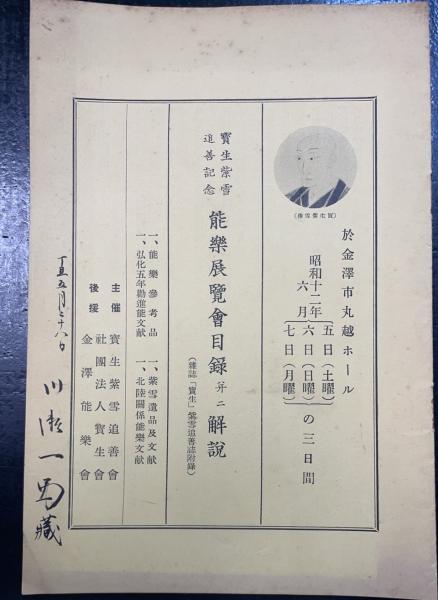 (寳生紫雪像)
於金澤市丸越ホール
昭和十二年六月
五日(土曜)
六日(日曜)
七日(月曜)
の三日間
寳生紫雪
追善記念
能樂展覽會目録 并ニ 解說
(雜誌「寳生」紫雪追善誌附錄)
一、能樂參考品
一、紫雪遺品及文献
一、弘化五年勸進能文献
一、北陸關係能樂文献
主催 寳生紫雪追善會
社團法人寳生會
後援 金澤能樂會
丁丑五月二十八日
川瀬一馬藏